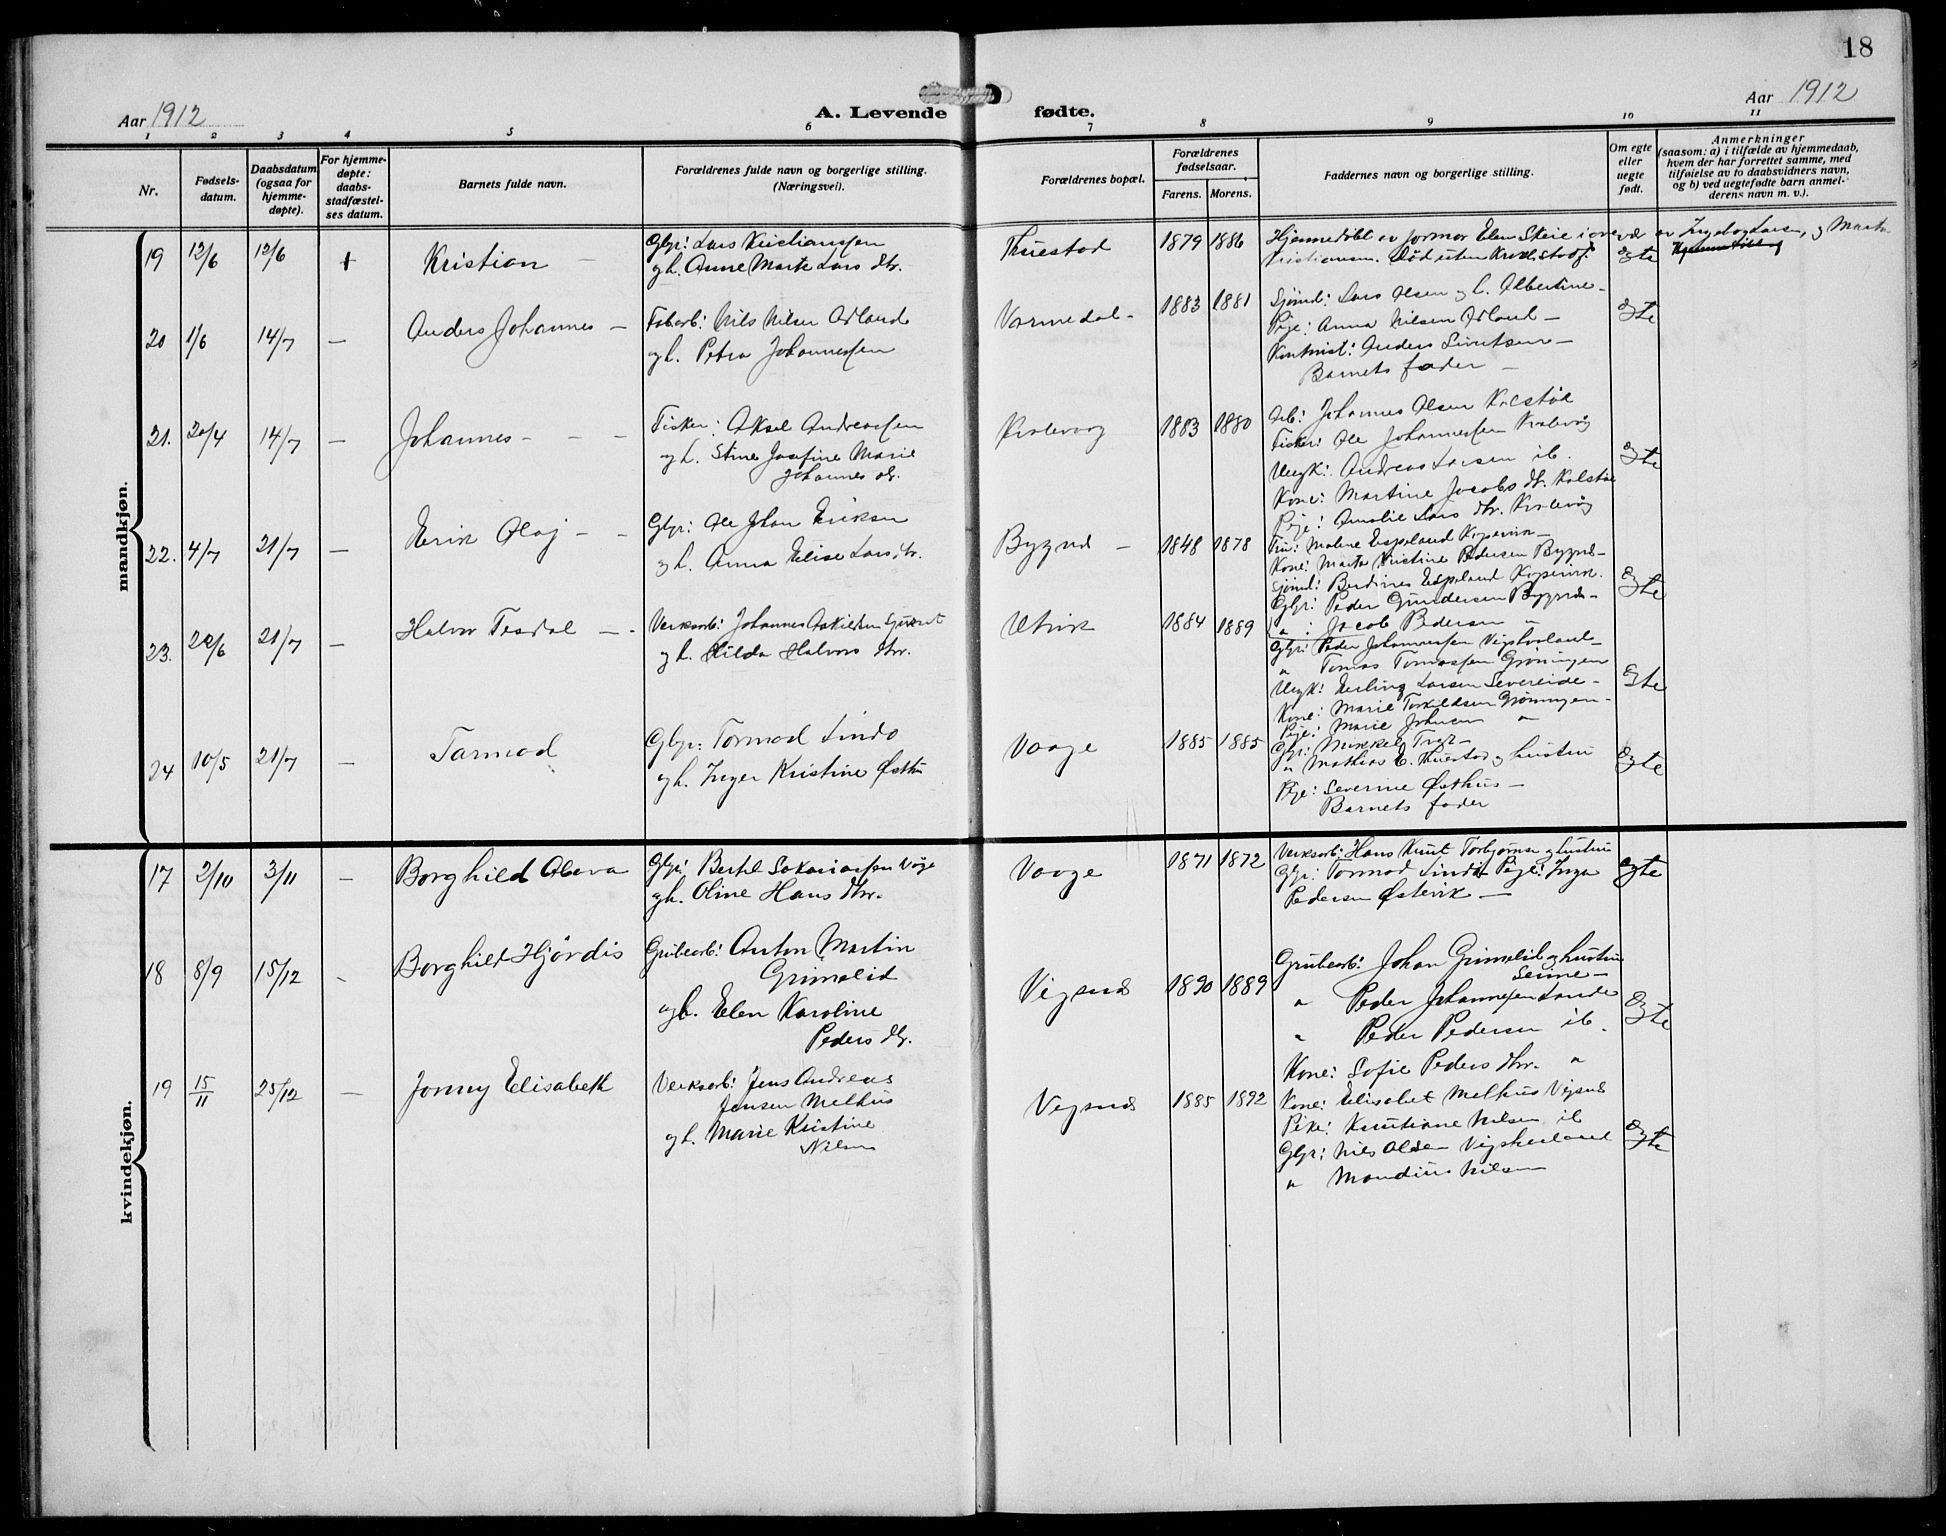 18
Aar 1912
A. Levende fødte.
Aar 1912
1 2 3 4 5 6 7 8 9 10 11
Nr.
Fødsels-
datum.
Daabsdatum
(ogsaa for
hjemme-
døpte).
For hjemme-
døpte:
daabs-
stadfæstel-
ses datum.
Barnets fulde navn.
Forældrenes fulde navn og borgerlige stilling.
(Næringsvei).
Forældrenes bopæl.
Forældrenes
fødselsaar.
Farens. Morens.
Faddernes navn og borgerlige stilling.
Om egte
eller
uegte
født.
Anmerkninger
(saasom: a) i tilfælde av hjemmedaab,
hvem der har forrettet samme, med
tilføielse av to daabsvidners navn,
og b) ved uegtefødte barn anmel-
derens navn m. v.).
mandkjøn.
19 12/6 12/6 + Kristian
Gbr: Lars Kristianssen
og h. Anne Marte Lars dtr.
Thuestad 1879 1886
Hjemmedøbt av farmor Elen Skeie i overvær av Ingeborg Larsen, og Marta
Kristiansen. Død uten
egte
20 1/6 14/7 — Anders Johannes —
Fabarb: Nils Nilsen Adland
og h. Petra Johannessen
Varmedal - 1883 1881
Sjømd: Lars Olsen og h. Albertine -
Pige: Anna Nilsen Adland —
Anders Sivertsen —
Barnets fader —
egte
21. 20/4 14/7 — Johannes - - -
Fisker: Aksel Andreassen
og h. Stine Josefine Marie
Johannes dr.
Kvalevaag 1883 1880
Arb: Johannes Olsen Kolstø
Fisker: Ole Johannessen Kvalevåg
Ungk: Andreas Larsen ib.
Kone: Martine Jacobs dtr. Kolstø
Pige: Amalie Lars dtr. Kvalevåg
egte
22. 4/7 21/7 — Erik Olaf - -
Gbr: Ole Johan Eriksen
og h. Anna Elise Lars dtr.
Bygnes — 1848 1878
Fru: Malene Espeland Kopervik —
Kone: Marta Kristine Pedersen Bygnes -
Sjømd: Berdines Espeland Kopervik.
Gbr: Peder Gundersen Bygnes -
" : Jacob Pedersen "
egte
23. 22/6 21/7 — Halvor Tesdal — -
Verksarb: Johannes Askildsen
og h. Hilda Halvors dtr.
Utvik 1884 1889
Gbr: Peder Johannessen Vigshaaland -
" Tomas Tomassen Grønningen
Ungk: Erling Larsen Severeide -
Kone: Marie Torkildsen Grønningen -
Pige: Marie Johnsen "
egte
24 10/5 21/7 — Tormod
Gbr: Tormod Lindø
og h. Inger Kristine Østhus
Vaage 1885 1885
Gbr: Mikkel
" Mathias E. Thuestad og hustru
Pige: Severine Østhus —
Barnets fader
egte
kvindekjøn.
17 2/10 3/11 — Borghild Olava
Gbr: Bertel Sakariassen Våge
og h. Oline Hans dtr.
Vaage 1871 1872
Verksarb: Hans Knut Torbjørnsen og hustru
Gbr: Tormod Lindø Pige: Inga
Pedersen Østevik —
egte
18 8/9 15/12 - Borghild Hjördis
Grubearb: Anton Martin
Grimelid
og h. Elen Karoline
Peders dtr.
Vigsnes 1890 1889
Grubearb: Johan Grimelid og hustru
Seine —
" Peder Johannessen Sande
" Peder Pedersen ib.
Kone: Sofie Peders dtr. "
egte
19 15/11 25/12 — Jonny Elisabeth
Verksarb: Jens Andreas
Jensen Melhus
og h. Marie Kristine
Nilsen
Vigsnes 1885 1892
Kone: Elisabet Melhus Vigsnes
Pike: Kristiane Nilsen ib
Gbr: Nils Olsen Vigshaaland
" Mandius Nilsen
egte